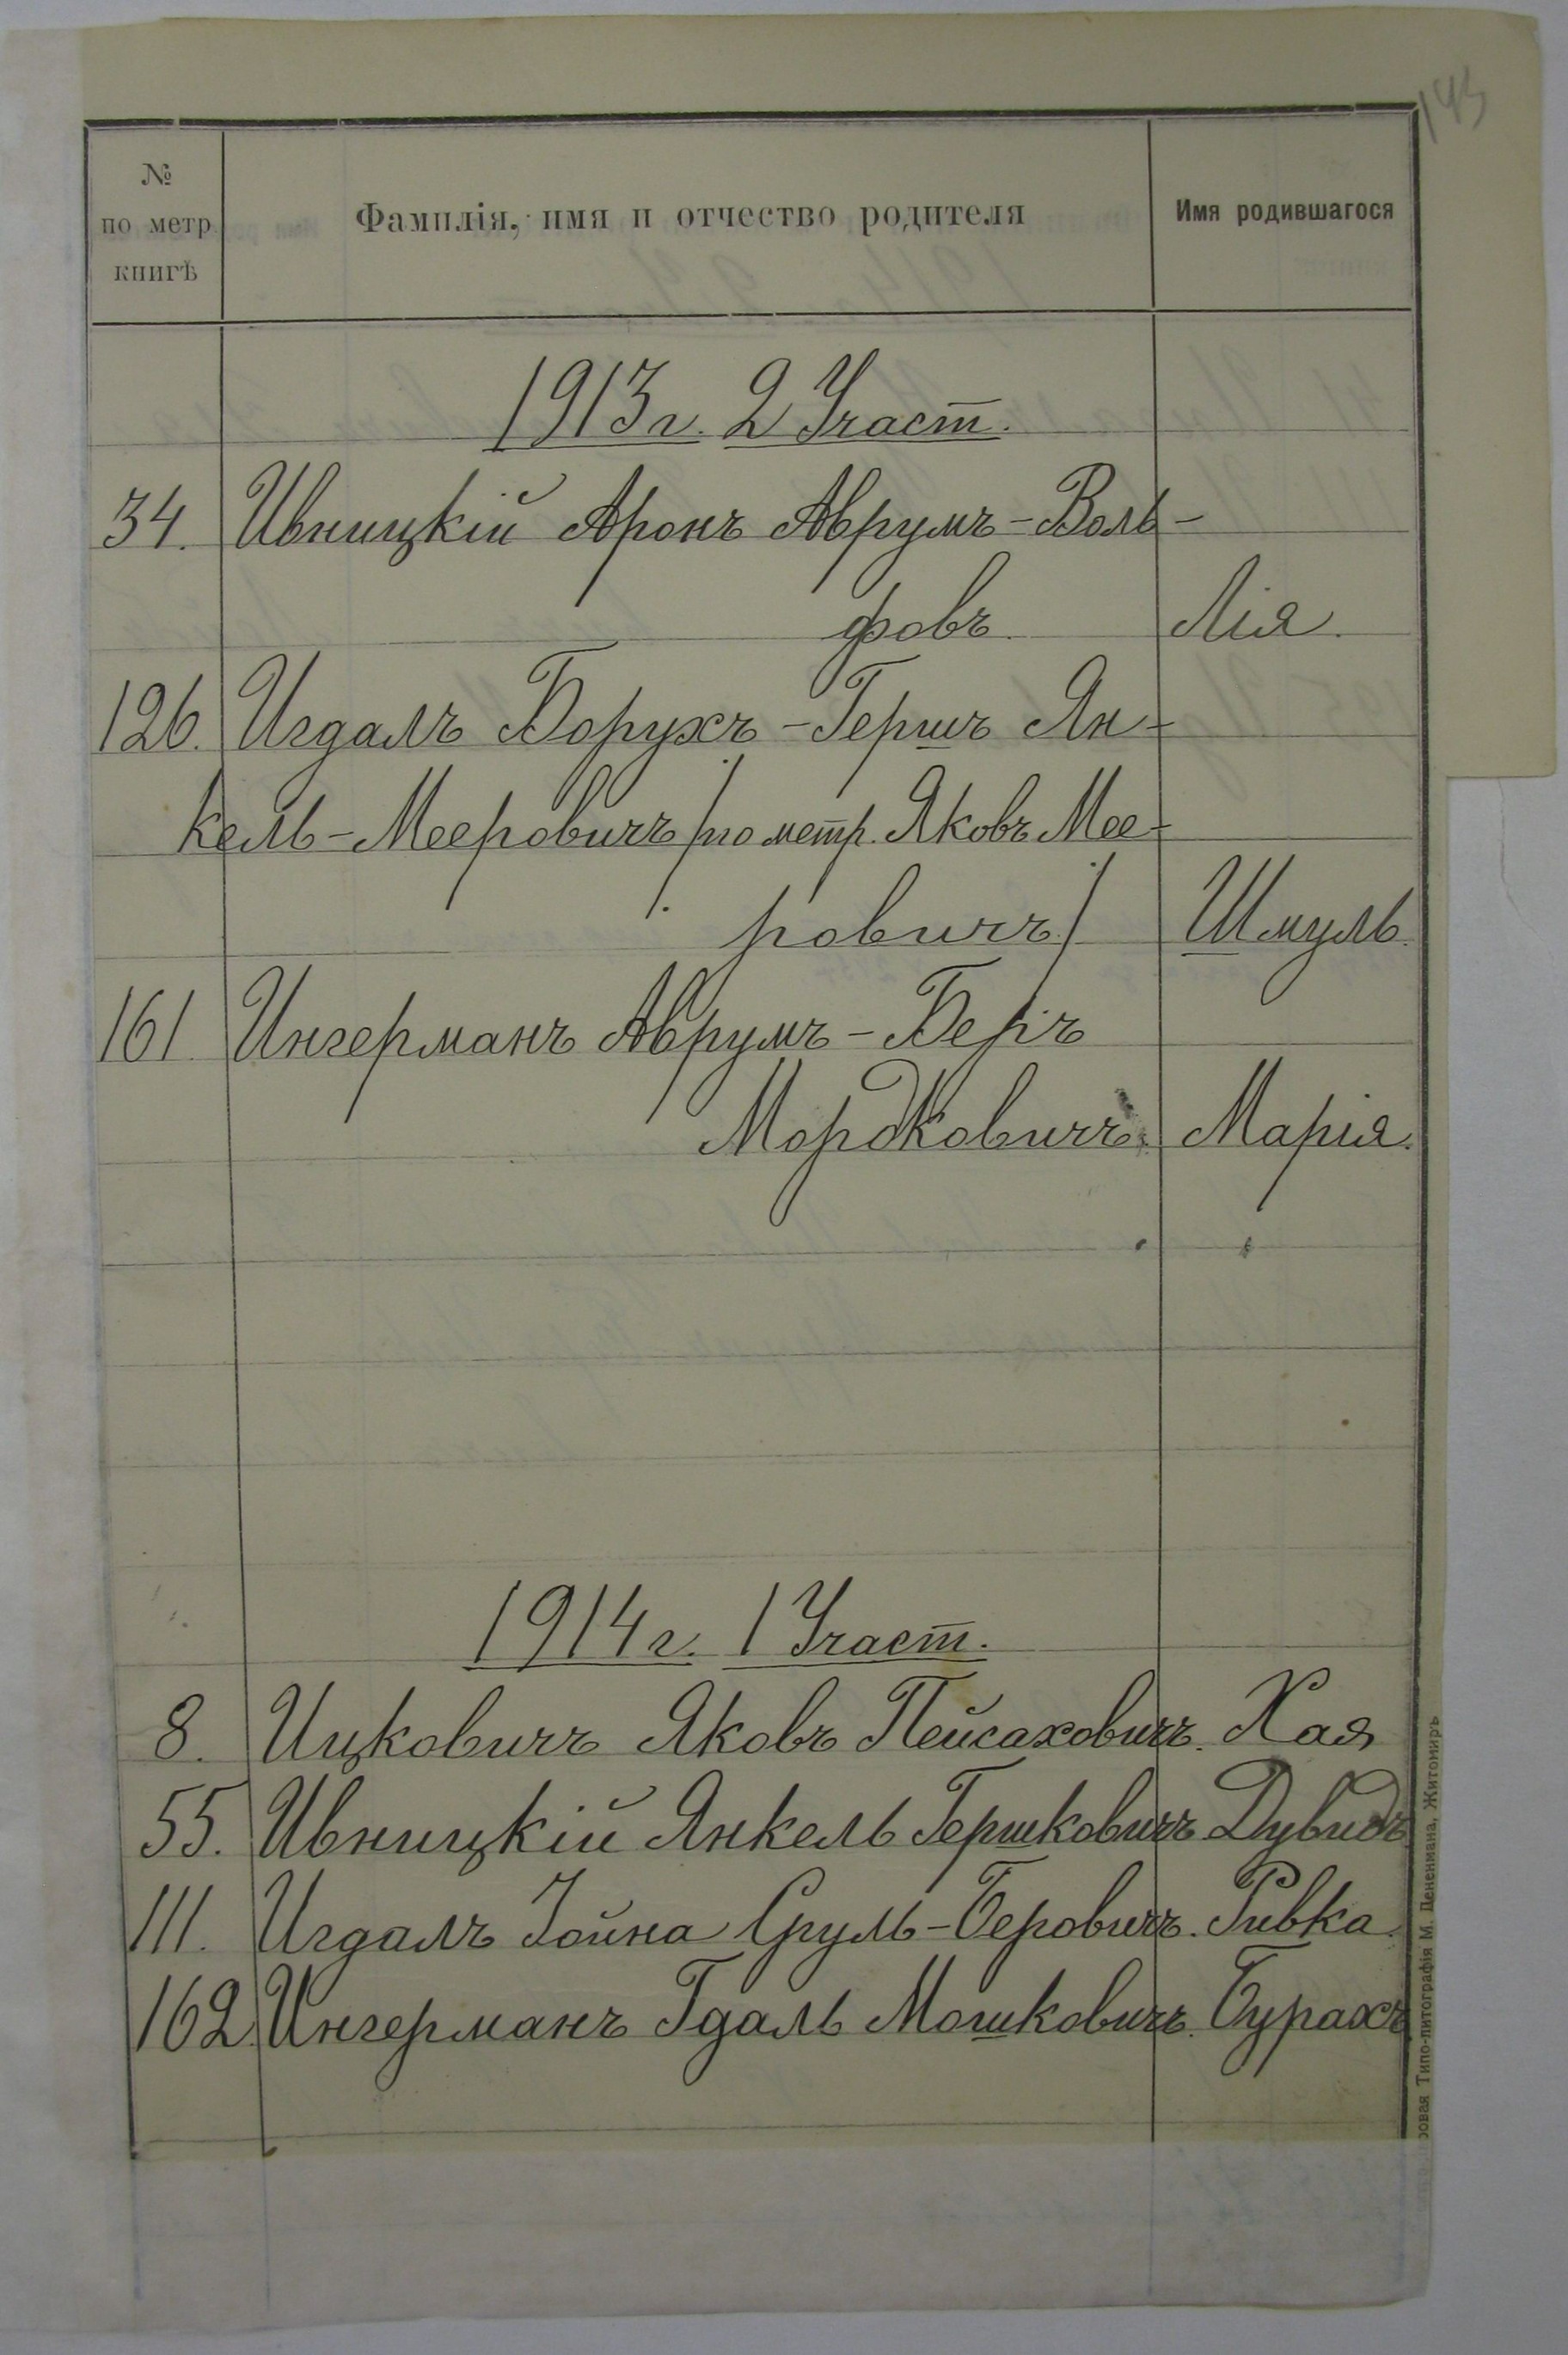 143
№
по метр.
книгѣ
Фамилія, имя и отчество родителя
Имя родившагося
1913 г. 2 Участ.
34. Ивницкій Аронъ Аврумъ-Воль-
фовъ Лія.
126. Игдалъ Борухъ-Гершъ Ян-
кель-Мееровичъ /по метр. Яковъ Мее-
ровичъ/ Шмуль.
161 Ингерманъ Аврумъ-Беръ
Мордковичъ. Марія.
1914 г. 1 Участ.
8. Ицковичъ Яковъ Пейсаховичъ. Хая
55. Ивницкій Янкель Гершковичъ Дувидъ
111. Игдалъ Іойна Сруль-Беровичъ. Ривка.
162. Ингерманъ Гдаль Мошковичъ. Бурахъ
ровая Типо-литографія М. Дененмана, Житомиръ